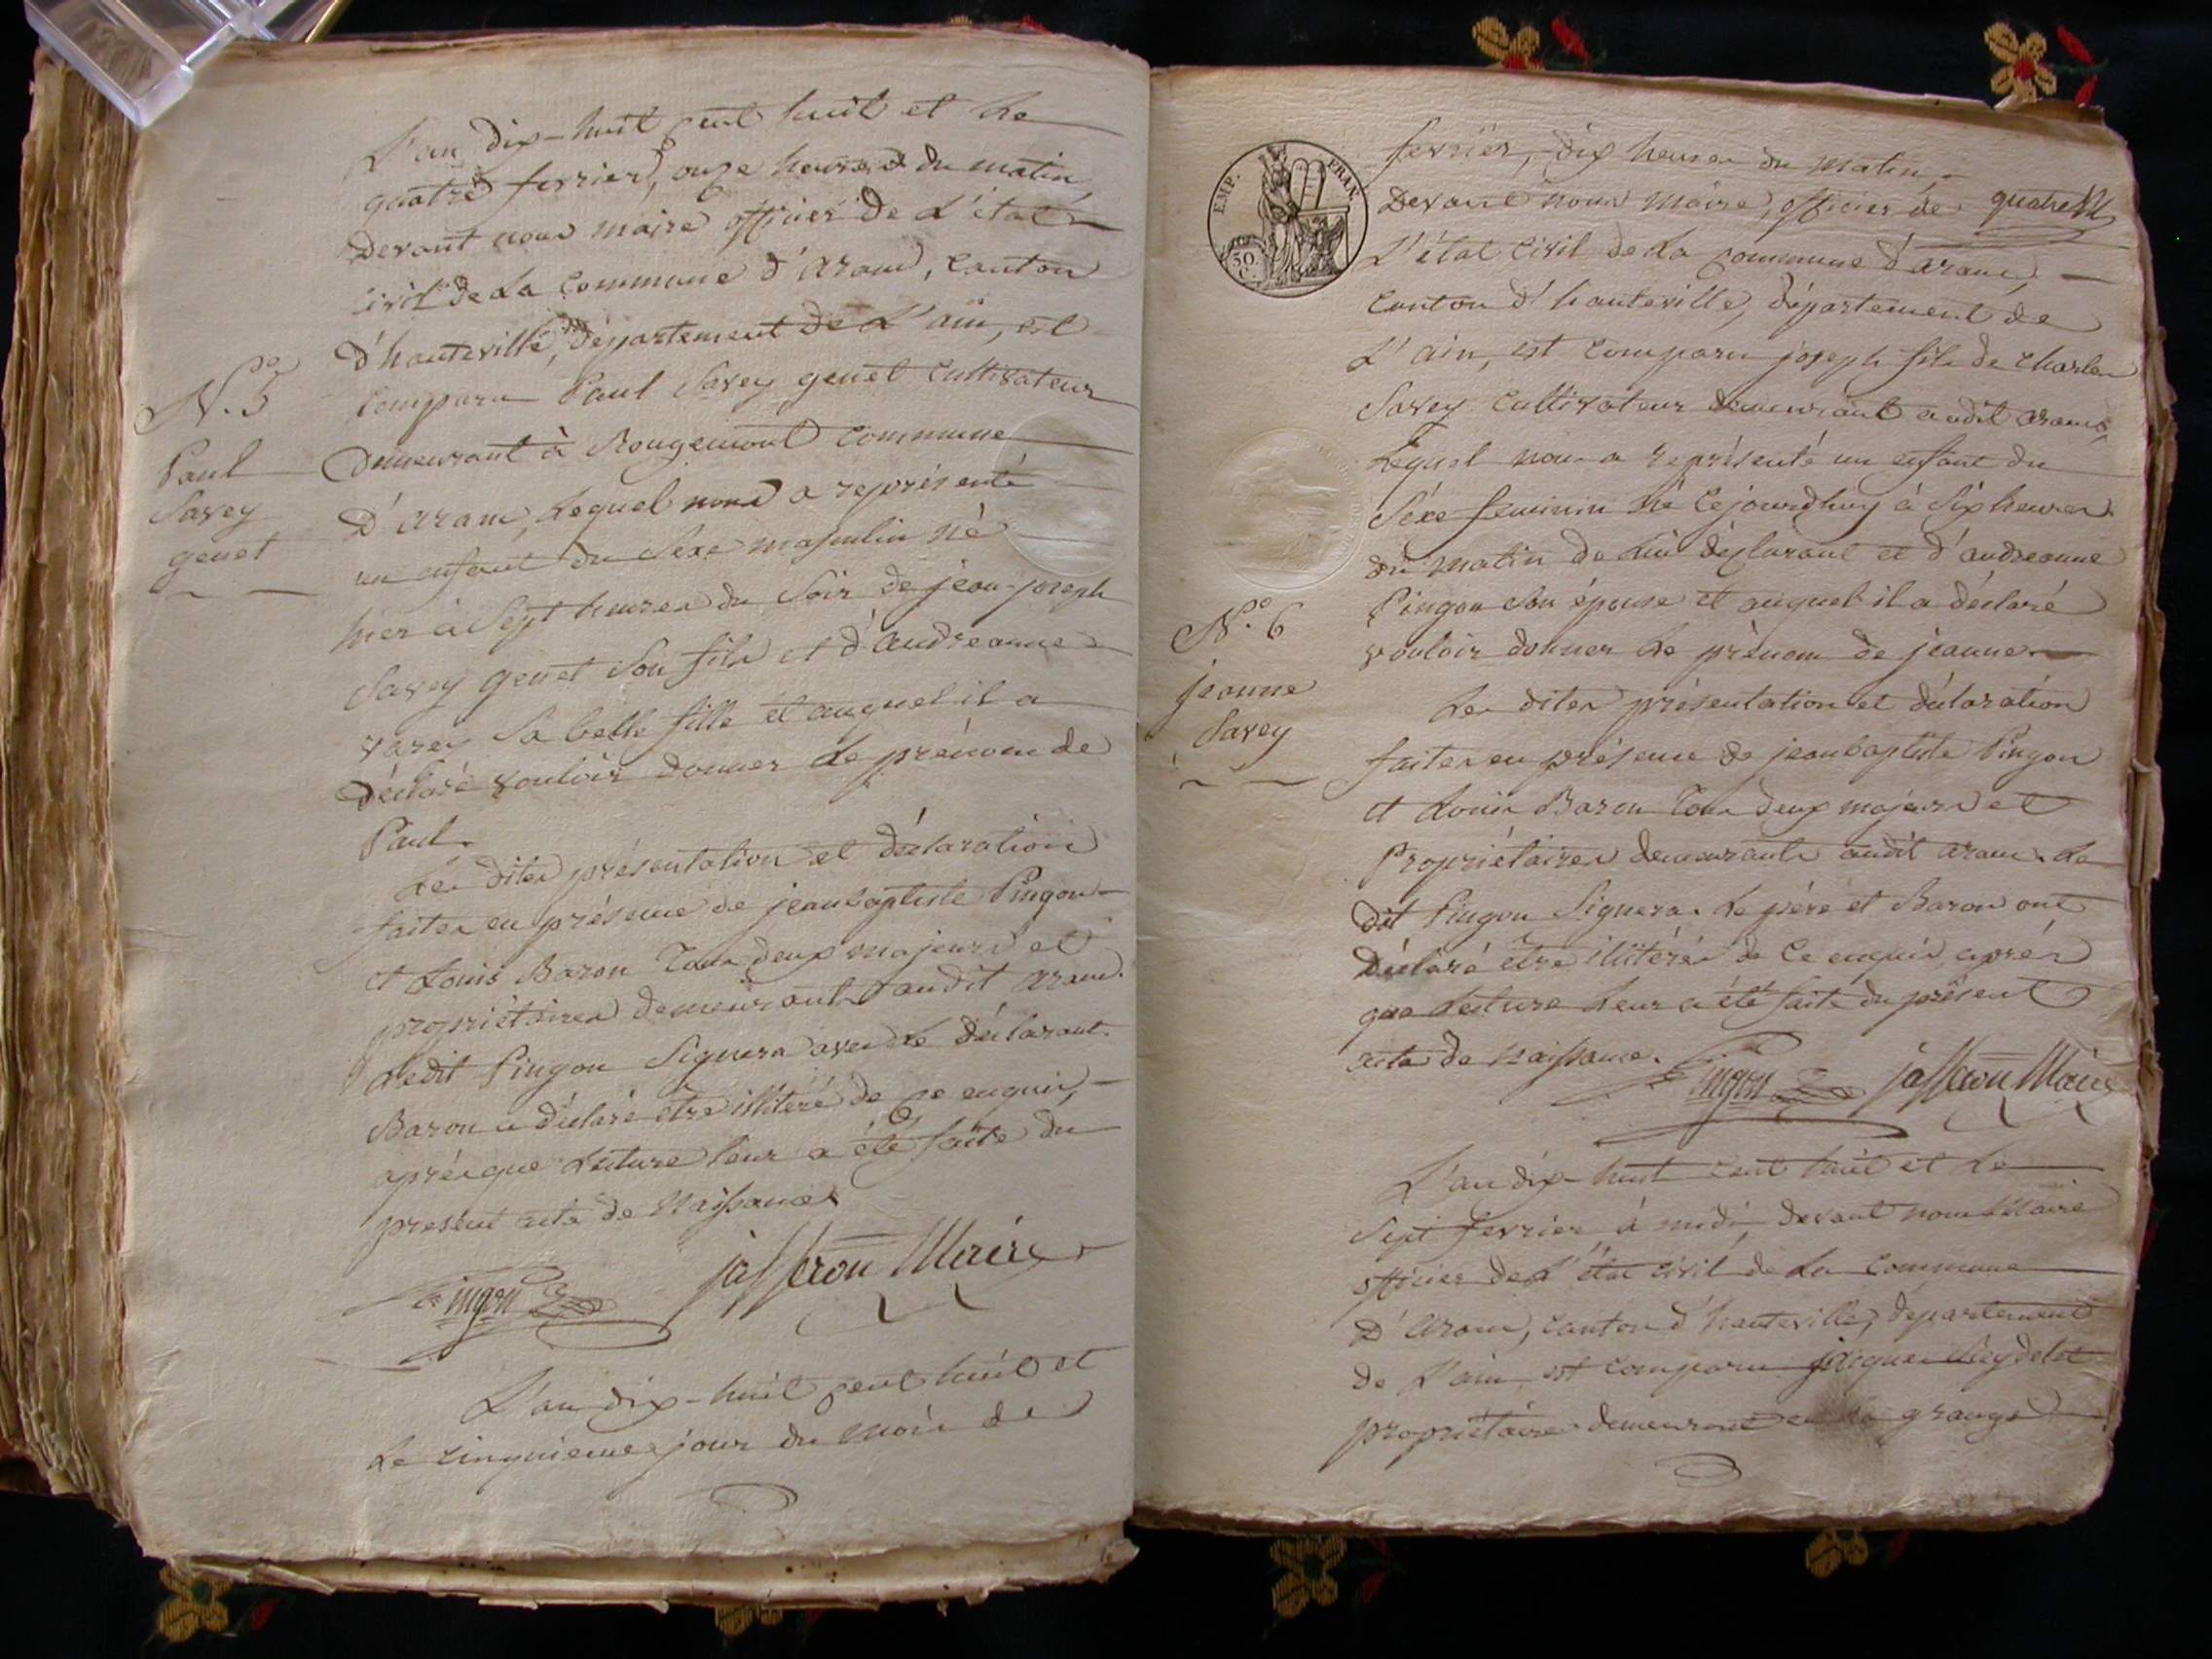 L'an dix-huit cent huit et le
quatre fevrier, onze heures du matin,
devant nous maire officier de L'état
civil de La Commune d'aranc, Canton
d'hauteville, département de L'ain, est
Comparu Paul Savey genet Cultivateur
N.° 5
Paul
Savey
genet
demeurant à Rougemont Commune
d'aranc, Lequel nous a représenté
un enfant du Sexe masculin né
hier à Sept heures du Soir de jean-joseph
Savey genet Son fils et d'andreanne
varey Sa belle fille et auquel il a
déclaré vouloir donner Le prénom de
Paul.
Les dites présentation et déclaration
faites en présence de jean baptiste Pingon
et Louis Baron Tous deux majeurs et
propriétaires demeurants audit aranc.
Ledit Pingon Signera avec Le déclarant.
Baron a déclaré etre illitéré de ce enquis,
après que Lecture leur a été faite du
present acte de Naissance.
Pingon jasseron Maire
L'an dix-huit cent huit et
Le cinquieme jour du mois de
EMP. FRAN.
50 C.
fevrier, dix heures du matin,
Devant nous Maire, officier de
quatre
L'état Civil de La Commune d'aranc,
Canton d'hauteville, département de
L'ain, est Comparu joseph fils de Charles
Savey Cultivateur demeurant audit aranc,
Lequel nous a représenté un enfant du
Séxe feminin né Cejourdhuy à Six heures
du matin de Lui déclarant et d'andreanne
Pingon Son épouse et auquel il a déclaré
vouloir donner Le prénom de jeanne.
N.° 6
jeanne
Savey
Les dites présentation et déclaration
faites en présence de jean baptiste Pingon
et Louis Baron Tous deux majeurs et
Propriétaires demeurants audit aranc. Le
dit Pingon Signera. Le père et Baron ont
Déclaré etre illitérés de Ce enquis, après
que Lecture Leur a été faite du présent
acte de Naissance.
Pingon jasseron Maire
L'an dix-huit Cent huit et Le
Sept fevrier à midi, devant nous Maire
officier de L'état Civil de La Commune
D'aranc, Canton d'hauteville, département
de L'ain est Comparu jacques
propriétaire demeurant en La grange